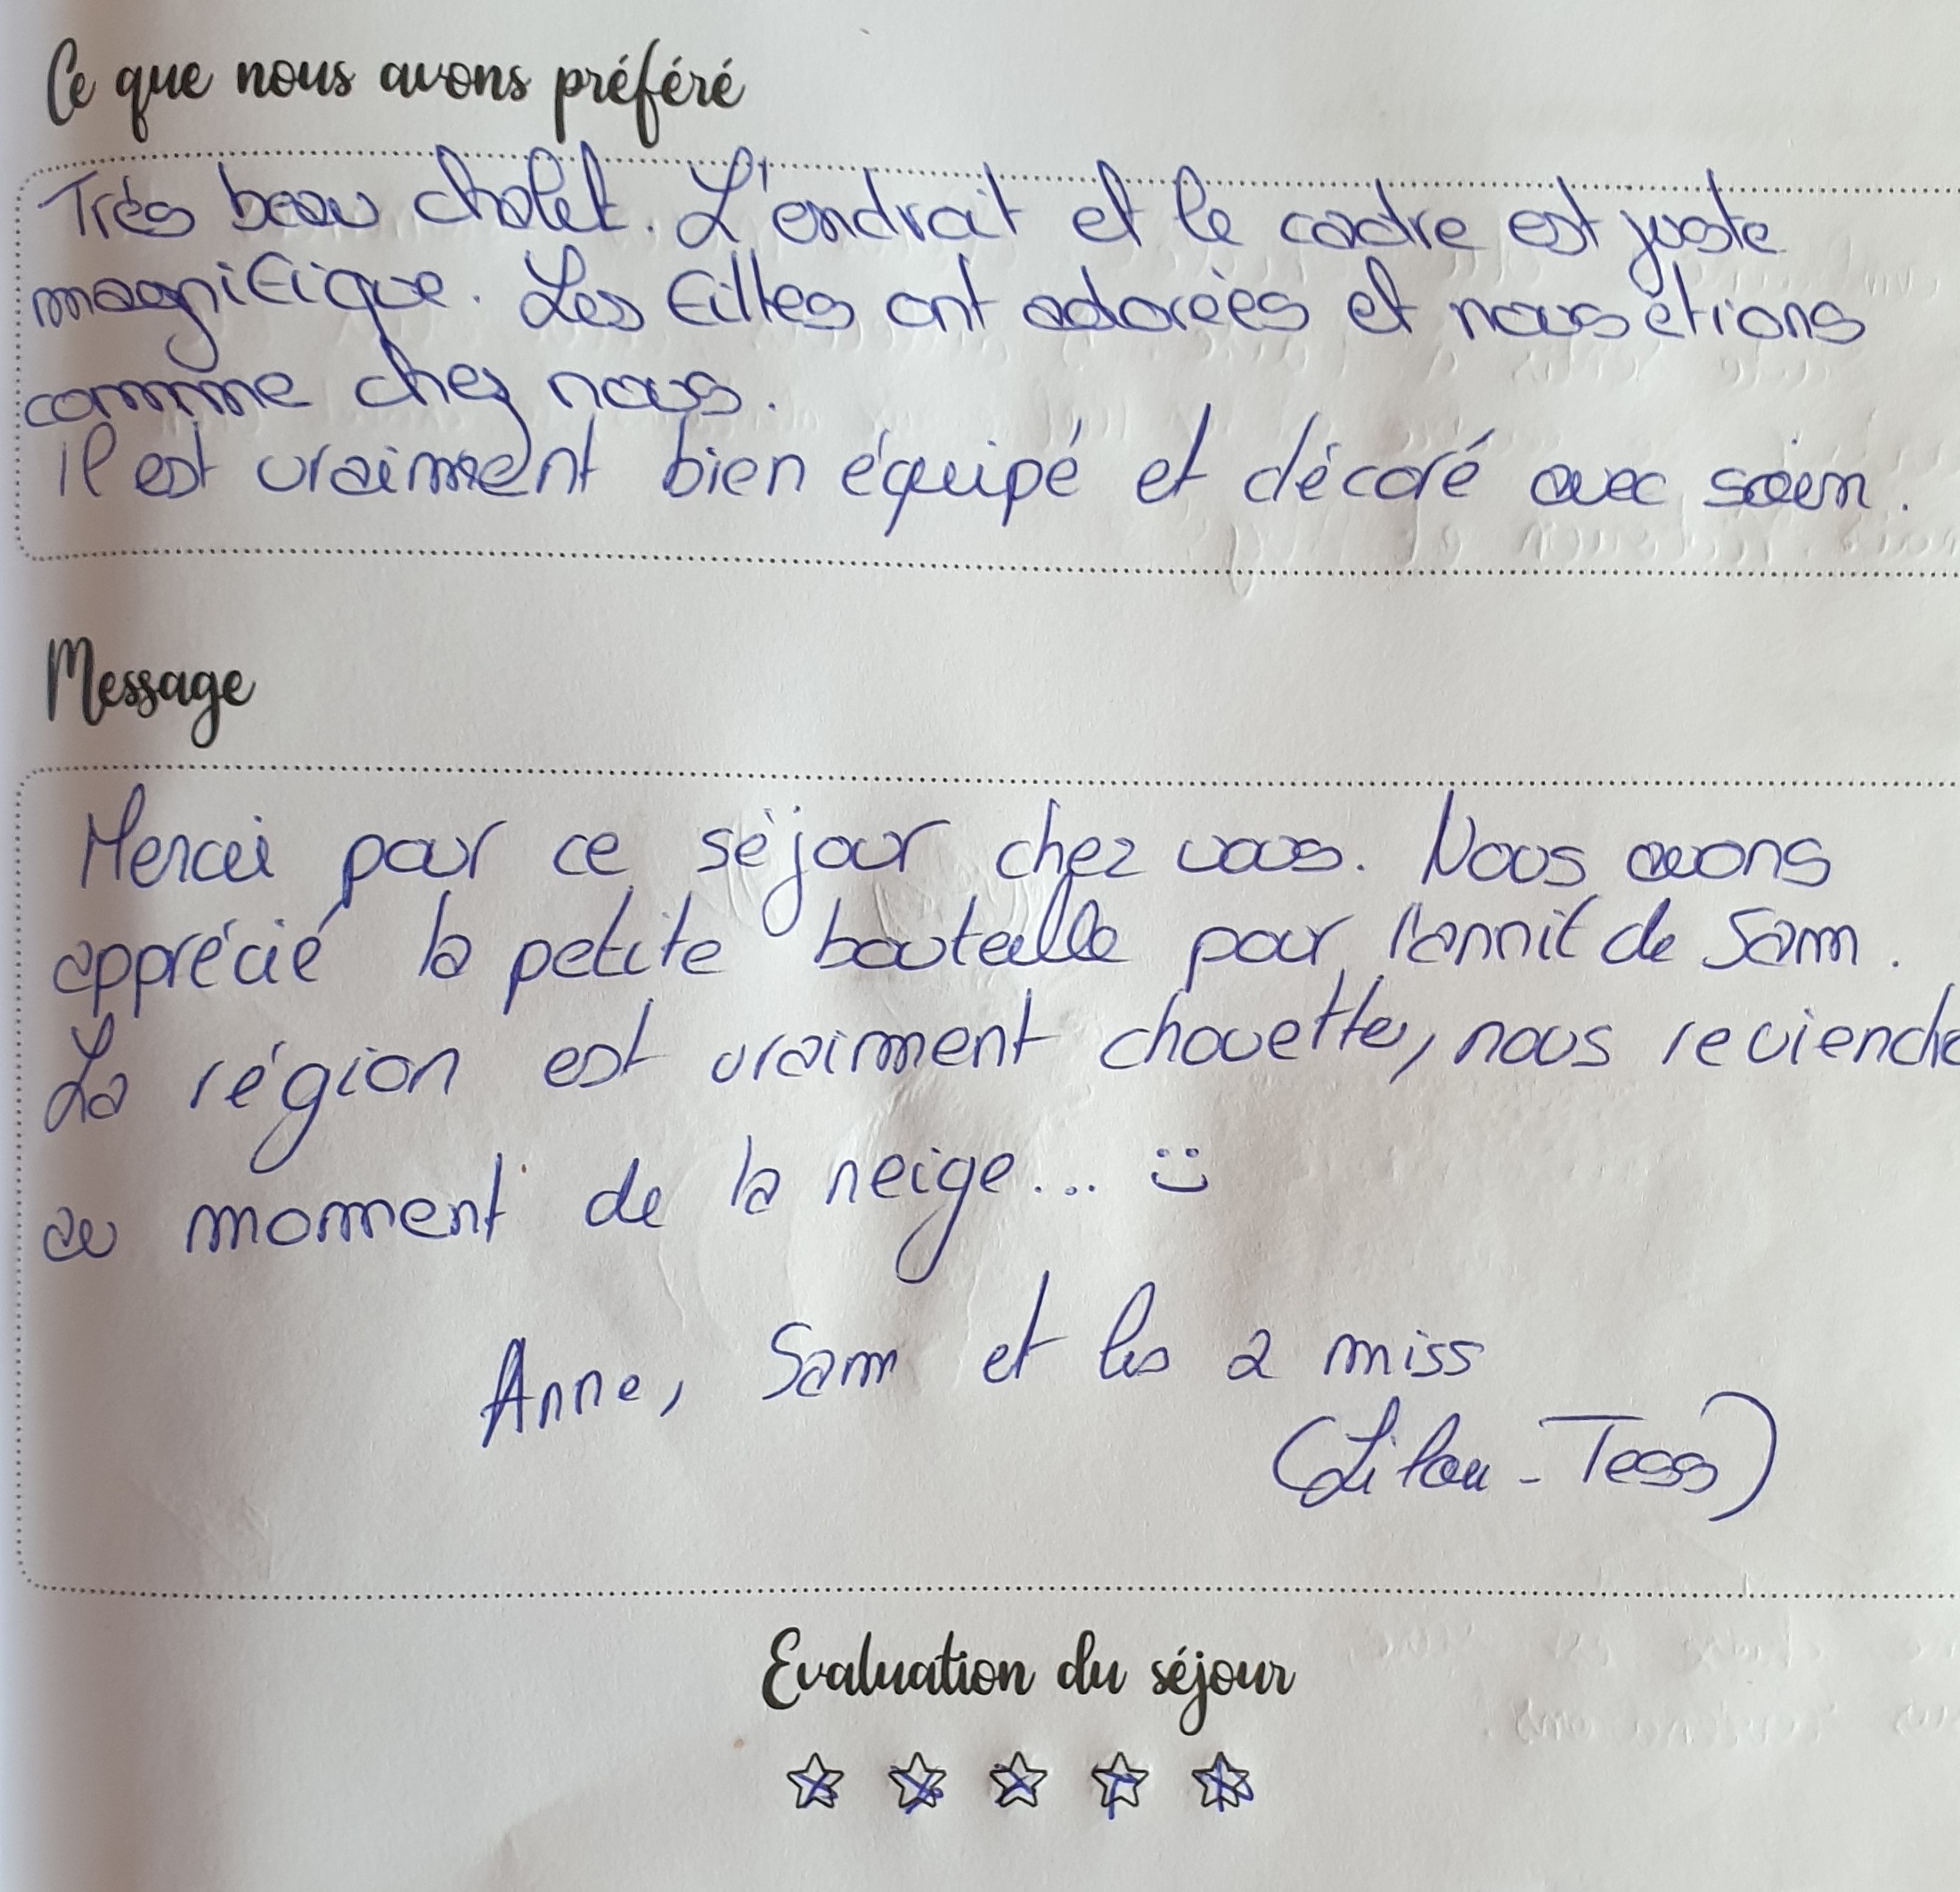 Ce que nous avons préféré
Très beau chalet. L'endroit et le cadre est juste
magnifique. Les filles ont adorées et nous étions
comme chez nous.
Il est vraiment bien équipé et décoré avec soin.
Message
Merci pour ce séjour chez vous. Nous avons
apprécié la petite bouteille pour l'annif de Sam.
La région est vraiment chouette, nous reviend
au moment de la neige... :)
Anne, Sam et les 2 miss
(Lilou - Tess)
Evaluation du séjour